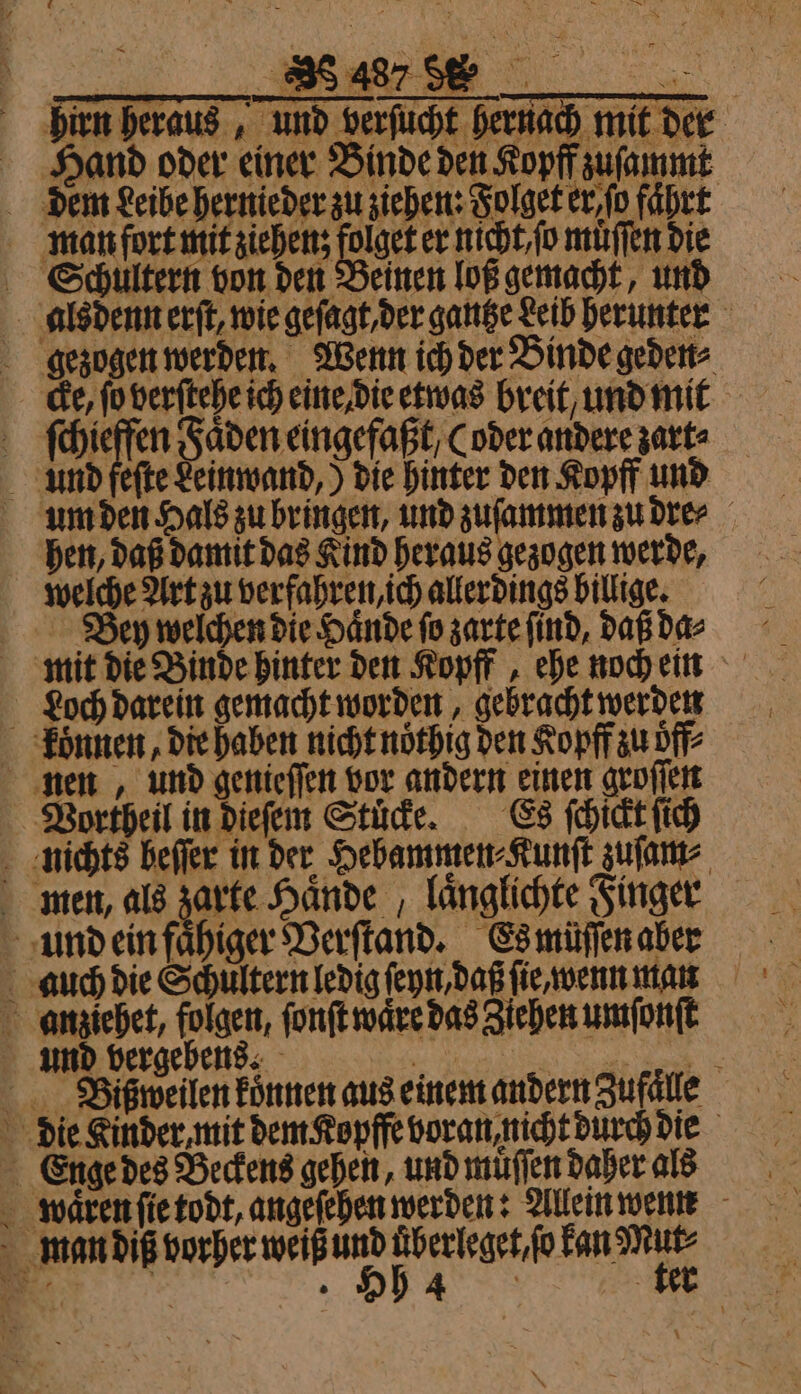 487
hirn heraus, und verſucht hernach mit der
Hand oder einer Binde den Kopff zuſammt
dem Leibe hernieder zu ziehen: Folget er, ſo faͤhrt
man fort mit ziehen; folget er nicht, ſo muͤſſen die
Schultern von den Beinen loß gemacht, und
alsdenn erſt, wie geſagt, der gantze Leib herunter
gezogen werden. Wenn ich der Binde geden⸗
cke, ſo verſtehe ich eine, die etwas breit, und mit
ſchieffen Faͤden eingefaßt, (oder andere zart⸗
und feſte Leinwand,) die hinter den Kopff und
um den Hals zu bringen, und zuſammen zu dre⸗
hen, daß damit das Kind heraus gezogen werde,
welche Art zu verfahren, ich allerdings billige.
Bey welchen die Haͤnde ſo zarte ſind, daß da⸗
mit die Binde hinter den Kopff, ehe noch ein
Loch darein gemacht worden, gebracht werden
koͤnnen, die haben nicht noͤthig den Kopff zu oͤff⸗
nen, und genieſſen vor andern einen groſſen
Vortheil in dieſem Stuͤcke. Es ſchickt ſich
nichts beſſer in der Hebammen⸗Kunſt zuſam⸗
men, als zarte Haͤnde, laͤnglichte Finger
und ein faͤhiger Verſtand. Es muͤſſen aber
auch die Schultern ledig ſeyn, daß ſie, wenn man
anziehet, folgen, ſonſt waͤre das Ziehen umſonſt
und vergebens.
Bißweilen koͤnnen aus einem andern Zufaͤlle
die Kinder, mit dem Kopffe voran, nicht durch die
Enge des Beckens gehen, und muͤſſen daher als
waͤren ſie todt, angeſehen werden: Allein wenn
man diß vorher weiß und uͤberleget, ſo kan Mut⸗
Hh 4 ter